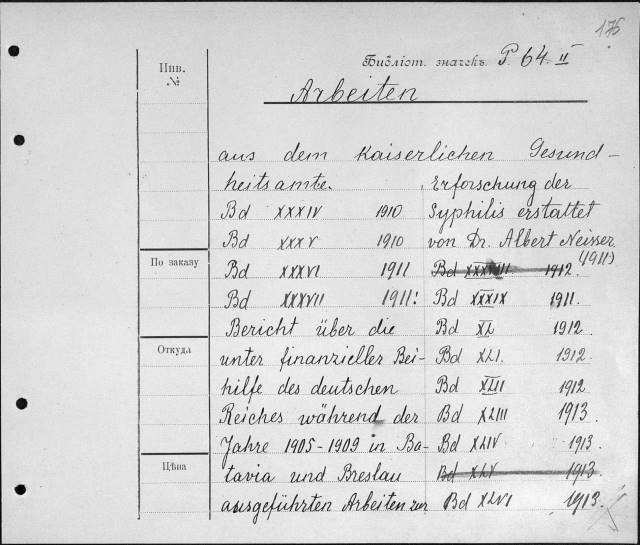 176
Инв.
№
Библіот. значекъ P 64 II
Arbeiten
aus dem Kaiserlichen Gesund-
heitsamte.
Bd XXXIV 1910
Bd XXXV 1910
По заказу
Bd XXXVI 1911
Bd XXXVII 1911:
Bericht über die
Откуда
unter finanzieller Bei-
hilfe des deutschen
Reiches während der
Jahre 1905-1909 in Ba-
Цѣна
tavia und Breslau
ausgeführten Arbeiten zur
Erforschung der
Syphilis erstattet
von Dr. Albert Neisser
(1911)
Bd XXXVIII 1912.
Bd XXXIX 1911.
Bd XL 1912
Bd XLI. 1912.
Bd XLII 1912
Bd XLIII 1913.
Bd XLIV 1913.
Bd XLV 1913
Bd XLVI 1913.